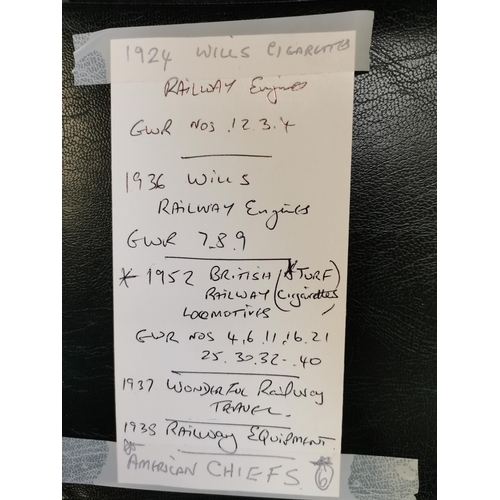 1924 WILLS CIGARETTES
RAILWAY Engines
GWR NOS .1 2.3.4
1936 Wills
RAILWAY Engines
GWR 7.8.9
* 1952 BRITISH (* TURF
RAILWAY Cigarettes)
LOCOMOTIVES
GWR NOS 4,6.11,16.21
25.30.32-.40
1937 WONDERFUL RAilway
TRAVEL.
1938 RAilway EQUIPMENT
AMERICAN CHIEFS. 6